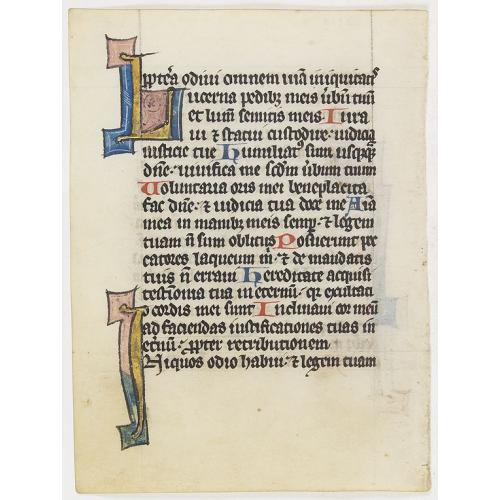 ppt̄ea odiui omnem uiā iniquitat̄
Lucerna pedibꝫ meis ūbūm tuū
et lum̄ semitis meis Iura
ui ⁊ statui custodire iudicia
iusticie tue Humiliatꝰ sum usqꝫquaqꝫ
dn̄e uiuifica me scd̄m ūbum tuum
Voluntaria oris mei beneplacita
fac dn̄e ⁊ iudicia tua doce me Aīa
mea in manibꝫ meis semp̄ ⁊ legem
tuam n̄ sum oblitus Posuerunt pec
catores laqueum m̄ ⁊ de mandatis
tuis n̄ erraui Hereditate acquisi
testīonia tua in eternū qr̄ exultati
o cordis mei sunt Inclinaui cor meū
ad faciendas iustificationes tuas in
et̄nū ꝓpter retributionem
Niquos odio habui ⁊ legem tuam